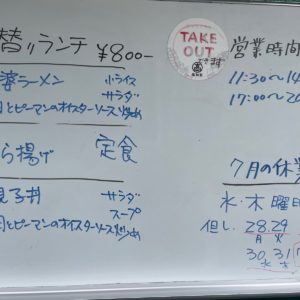 替りランチ ¥800-
婆ラーメン 小ライス
サラダ
肉とピーマンのオイスターソース炒め
ら揚げ 定食
親子丼 サラダ
スープ
肉とピーマンのオイスターソース炒め
TAKE
OUT
できます
営業時間
11:30~14
17:00~2
7月の休業
水・木曜日
但し、28.29
月 火
30.31
水 木